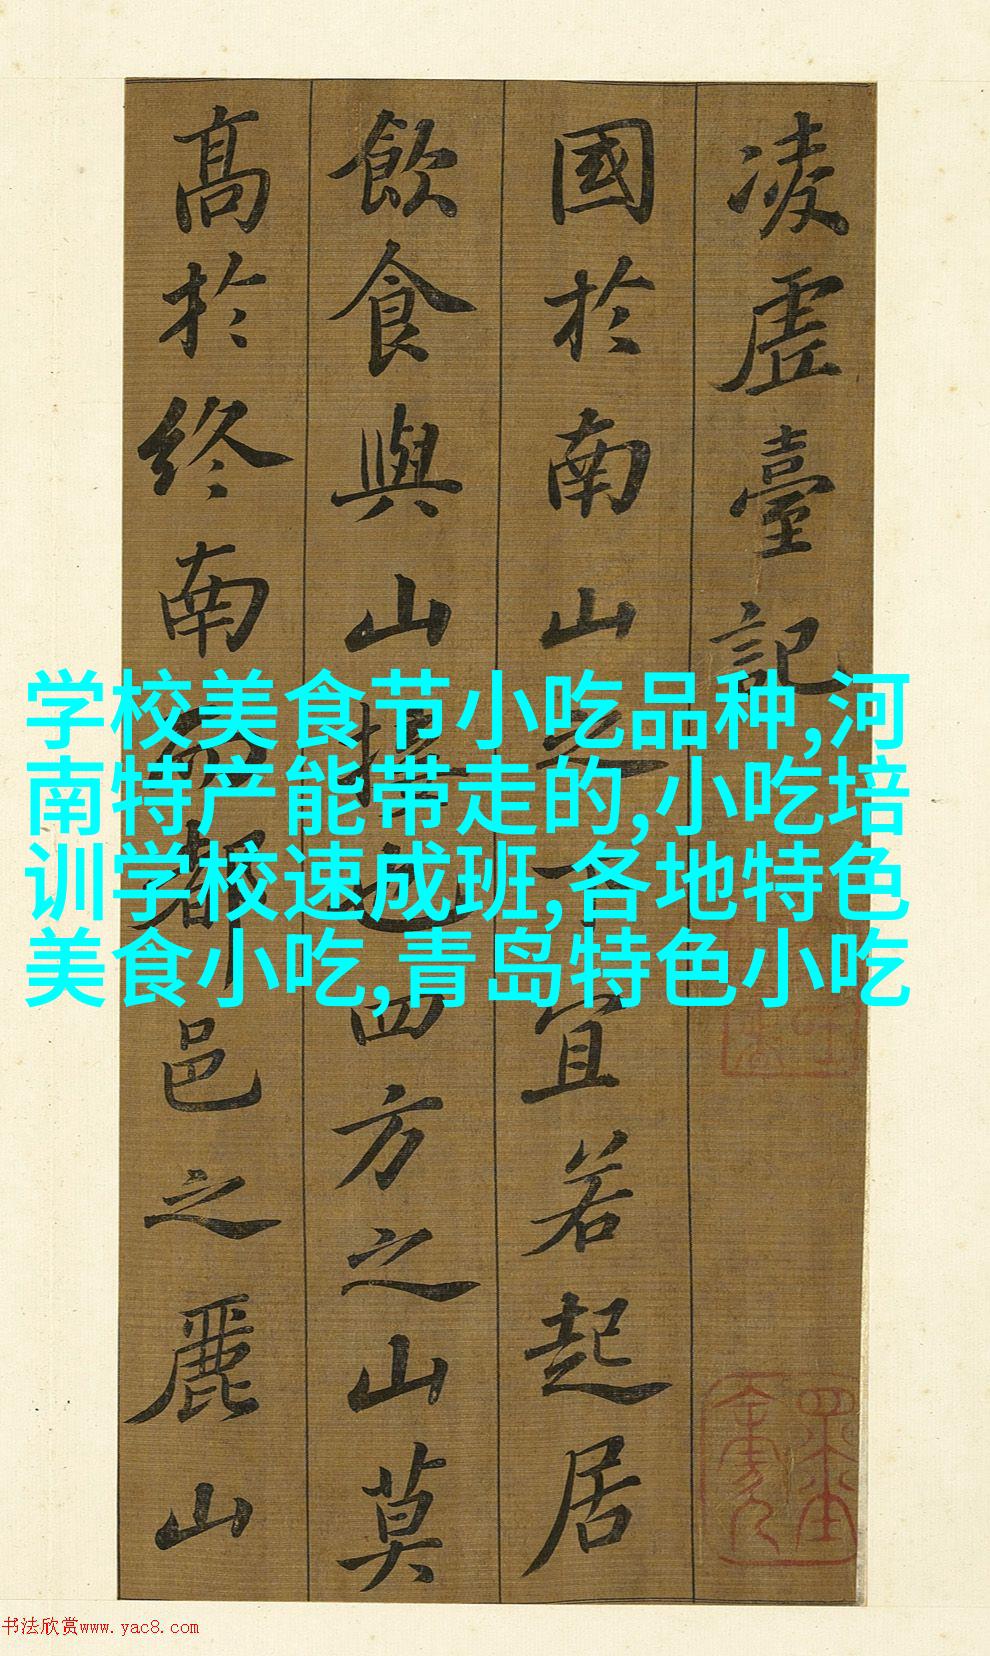 凌虛臺記
國於南山之下宜若起居
飲食與山接也四方之山莫
高於終南而都邑之麗山
学校美食节小吃品种,河
南特产能带走的,小吃培
训学校速成班,各地特色
美食小吃,青岛特色小吃
书法欣赏www.yac8.com